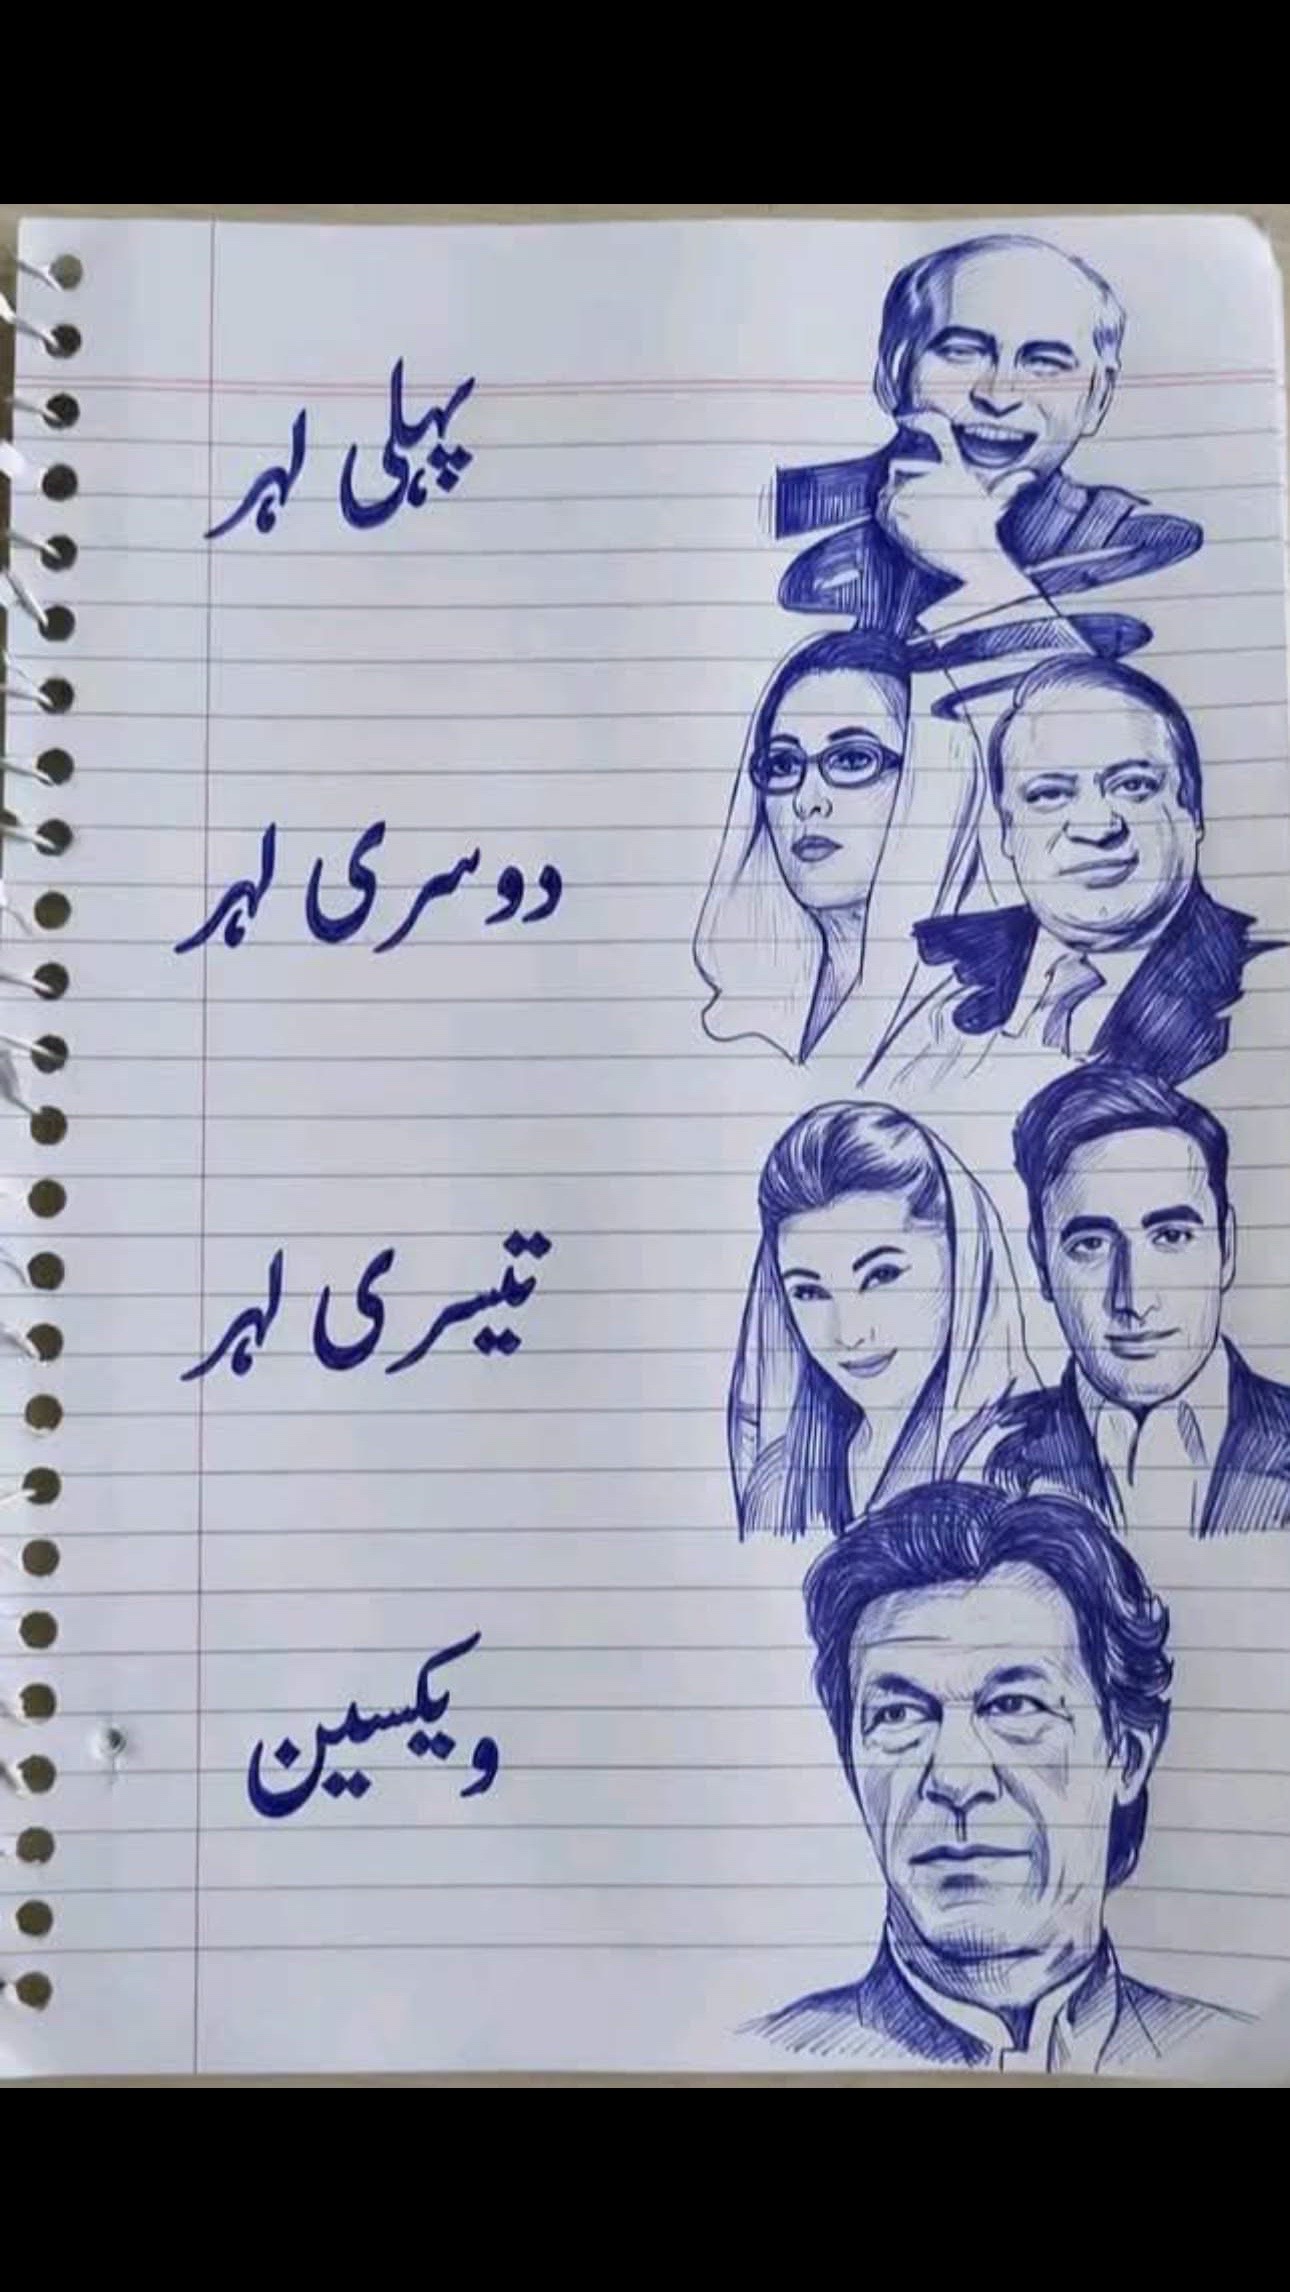 پہلی لہر
دوسری لہر
تیسری لہر
ویکسین